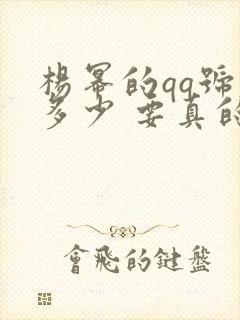 楊冪的qq號
多少 要真的
會飛的鍵盤